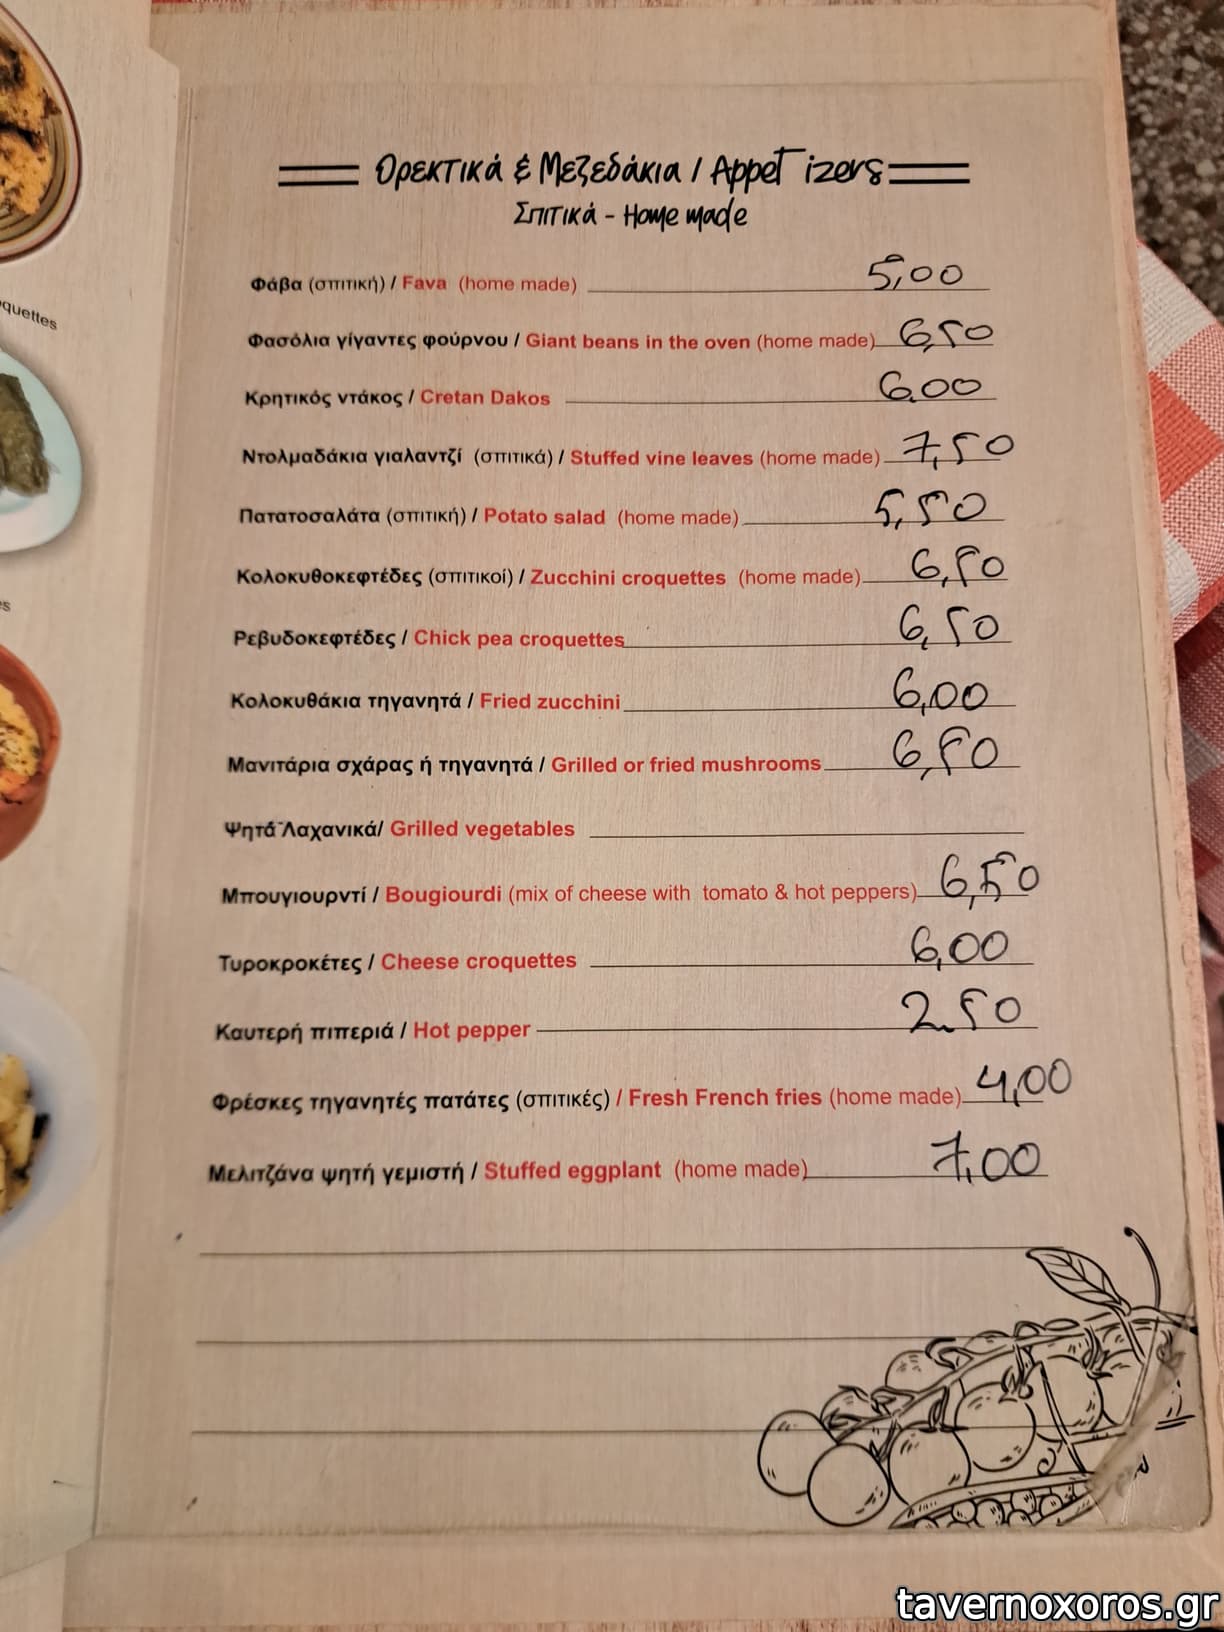 Ορεκτικά & Μεζεδάκια / Appetizers
Σπιτικά - Home made
Φάβα (σπιτική) / Fava (home made) 5,00
Φασόλια γίγαντες φούρνου / Giant beans in the oven (home made) 6,50
Κρητικός ντάκος / Cretan Dakos 6.00
Ντολμαδάκια γιαλαντζί (σπιτικά) / Stuffed vine leaves (home made) 7,50
Πατατοσαλάτα (σπιτική) / Potato salad (home made) 5,50
Κολοκυθοκεφτέδες (σπιτικοί) / Zucchini croquettes (home made) 6,50
Ρεβυδοκεφτέδες / Chick pea croquettes 6,50
Κολοκυθάκια τηγανητά / Fried zucchini 6,00
Μανιτάρια σχάρας ή τηγανητά / Grilled or fried mushrooms 6,50
Ψητά Λαχανικά/ Grilled vegetables
Μπουγιουρντί / Bougiourdi (mix of cheese with tomato & hot peppers) 6,50
Τυροκροκέτες / Cheese croquettes 6,00
Καυτερή πιπεριά / Hot pepper 2.50
Φρέσκες τηγανητές πατάτες (σπιτικές) / Fresh French fries (home made) 4,00
Μελιτζάνα ψητή γεμιστή / Stuffed eggplant (home made) 7,00
tavernoxoros.gr